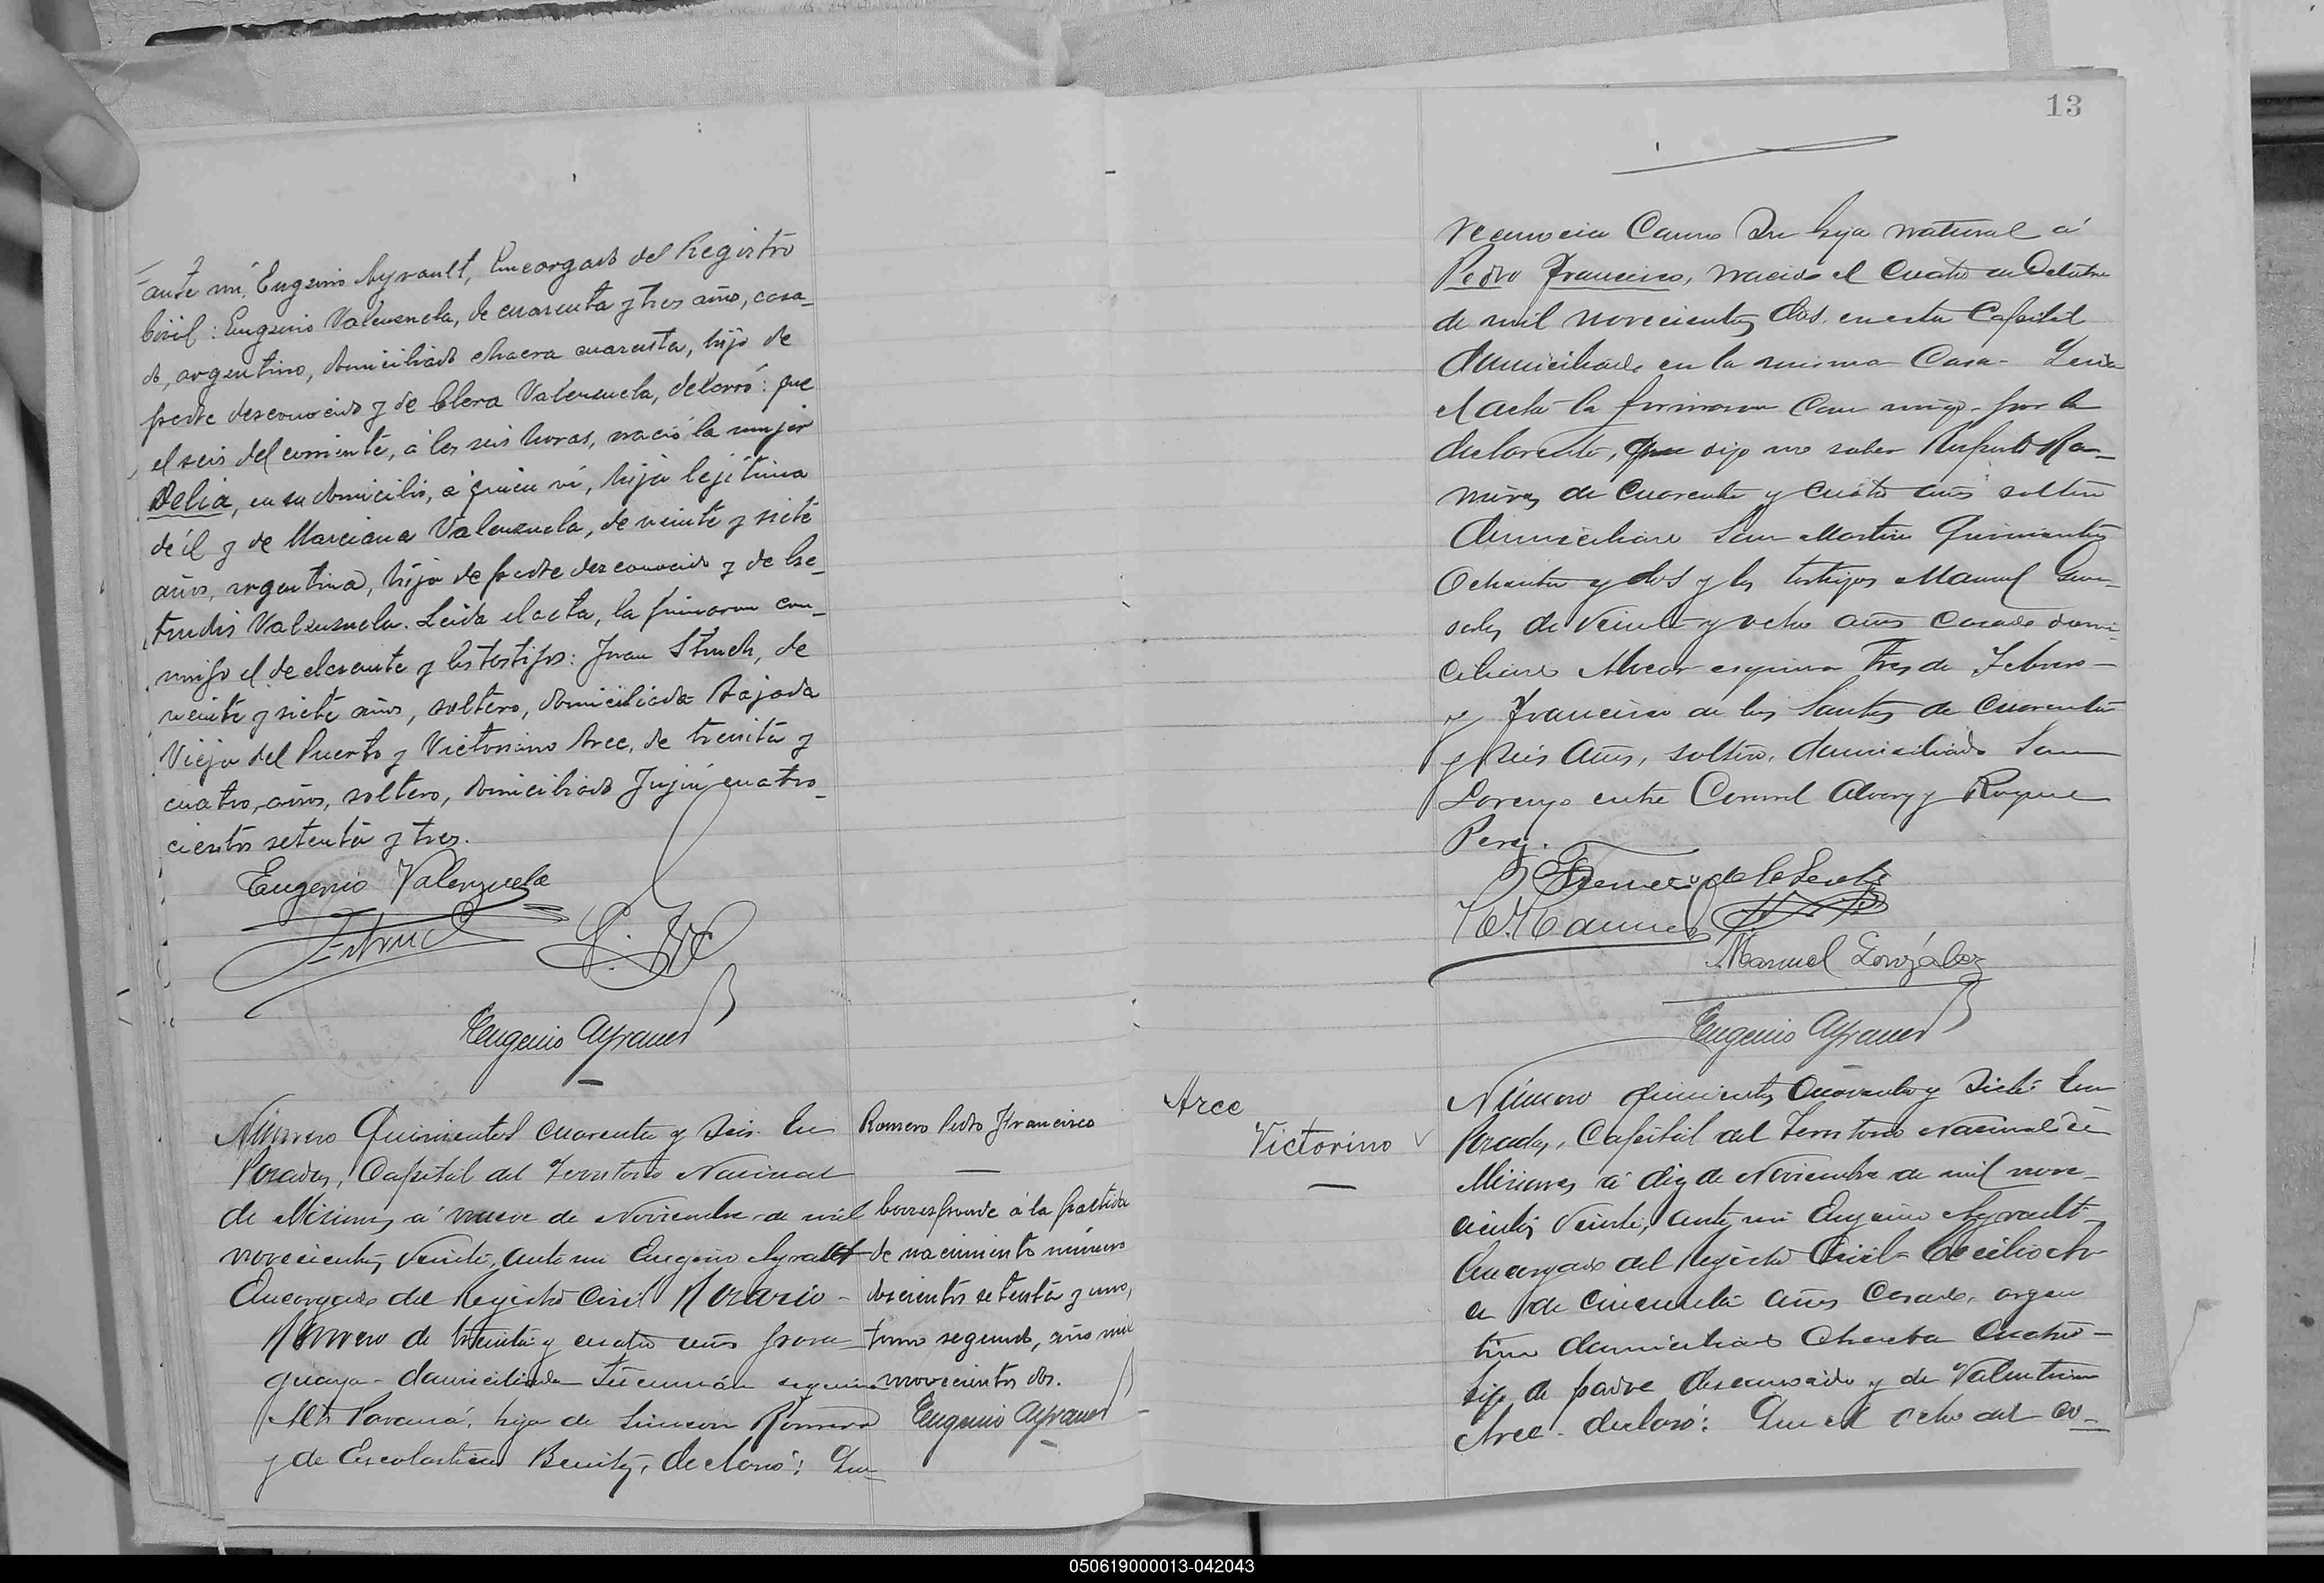 ante mi, Eugenio Ayrault, Encargado del Registro
Civil: Eugenio Valenzuela, de cuarenta y tres años, casa-
do, argentino, domiciliado chacra cuarenta, hijo de
padre desconocido y de Clera Valenzuela, declaró: que
el seis del corriente, á las seis horas, nació la mujer
Delia, en su domicilio, a quien ví, hija lejitima
de él y de Marciana Valenzuela, de veinte y siete
años, argentina, hija de padre desconocido y de Ge-
trudis Valenzuela. Leida el acta, la firmaron con-
migo el declarante y los testigos: Juan Struch, de
veinte y siete años, soltero, domiciliado Bajada
Vieja del Puerto y Victoriano Arce, de treinta y
cuatro años, soltero, domiciliado Jujui cuatro-
cientos setenta y tres.
Eugenio Valenzuela
Eugenio Ayrault
Número Quinientos cuarenta y seis. En
Posadas, Capital del Territorio Nacional
de Misiones, á nueve de Noviembre de mil
novecientos veinte, ante mi Eugenio Ayrault
Encargado del Registro Civil Rosario
Romero de treinta y cuatro años para-
guaya domiciliada Tucumán esquina
Alto Paraná, hija de Simeon Romero
y de Escolastica Benitez, declaró: Que
Romero Pedro Francisco
Corresponde á la partida
de nacimiento número
doscientos setenta y uno,
tomo segundo, año mil
novecientos dos.
Eugenio Ayrault
13
reconocia Como Su hijo natural á
Pedro Francisco, nacido el Cuatro de Octubre
de mil novecientos dos. en esta Capital
domiciliado en la misma Casa. Leida
el acta la firmaron con migo por la
declarante, que dijo no saber Ruperto Ra-
mirez de Cuarenta y cuatro años soltero
domiciliado San Martin Quinientos
Ochenta y dos y los testigos Manuel Gon-
zalez de veinte y ocho años casado domi-
ciliado Alvear esquina Tres de Febrero
y Francisco de los Santos de Cuarenta
y seis años, soltero, domiciliado San
Lorenzo entre Coronel Alvarez y Roque
Perez.
Manuel González
Eugenio Ayrault
Arce
Victorino
Número quinientos Cuarenta y Siete: En
Posadas, Capital del Territorio Nacional de
Misiones á diez de Noviembre de mil nove-
cientos veinte, ante mi Eugenio Ayrault
Encargado del Registro Civil Cecilio Ar-
ce de cincuenta años Casado, argen
tino domiciliado Chacra Cuatro
hijo de padre desconocido y de Valentina
Arce. declaró: Que el ocho del co-
050619000013-042043